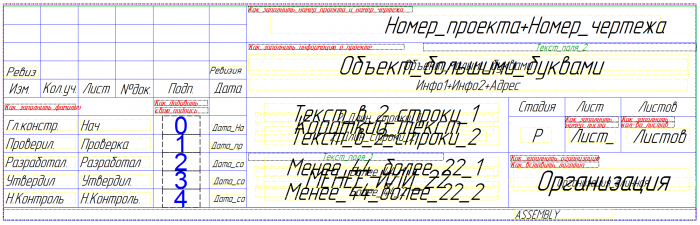 Как_заполнить_номер_проекта_и_номер_чертежа
Номер_проекта+Номер_чертежа
Как_заполнить_информацию_о_проекте
Текст_поля_2
Объект_большими_буквами
Инфо1+Инфо2+Адрес
Ревиз Ревизия
Изм. Кол.уч. Лист №док. Подп. Дата
Как_заполнить_фамилии
Как_добавить_свою_подпись
Текст_в_2_строки_1
Короткий_текст
Текст_в_2_строки_2
Стадия Лист Листов
Как_заполнить_номер_листа
Как_заполнить_кол-во_листов
Р Лист_ Листов
Гл.констр. Нач 0 Дата_На
Проверил. Проверка 1 Дата_пр
Разработал. Разработал 2 Дата_со
Утвердил Утвердил. 3 Дата_со
Н.Контроль Н.Контроль. 4 Дата_со
Текст_поля_1
Менее_44_более_22_1
Менее_или_22
Менее_44_более_22_2
Как_заполнить_организацию
Как_вставить_логотип
Организация
ASSEMBLY